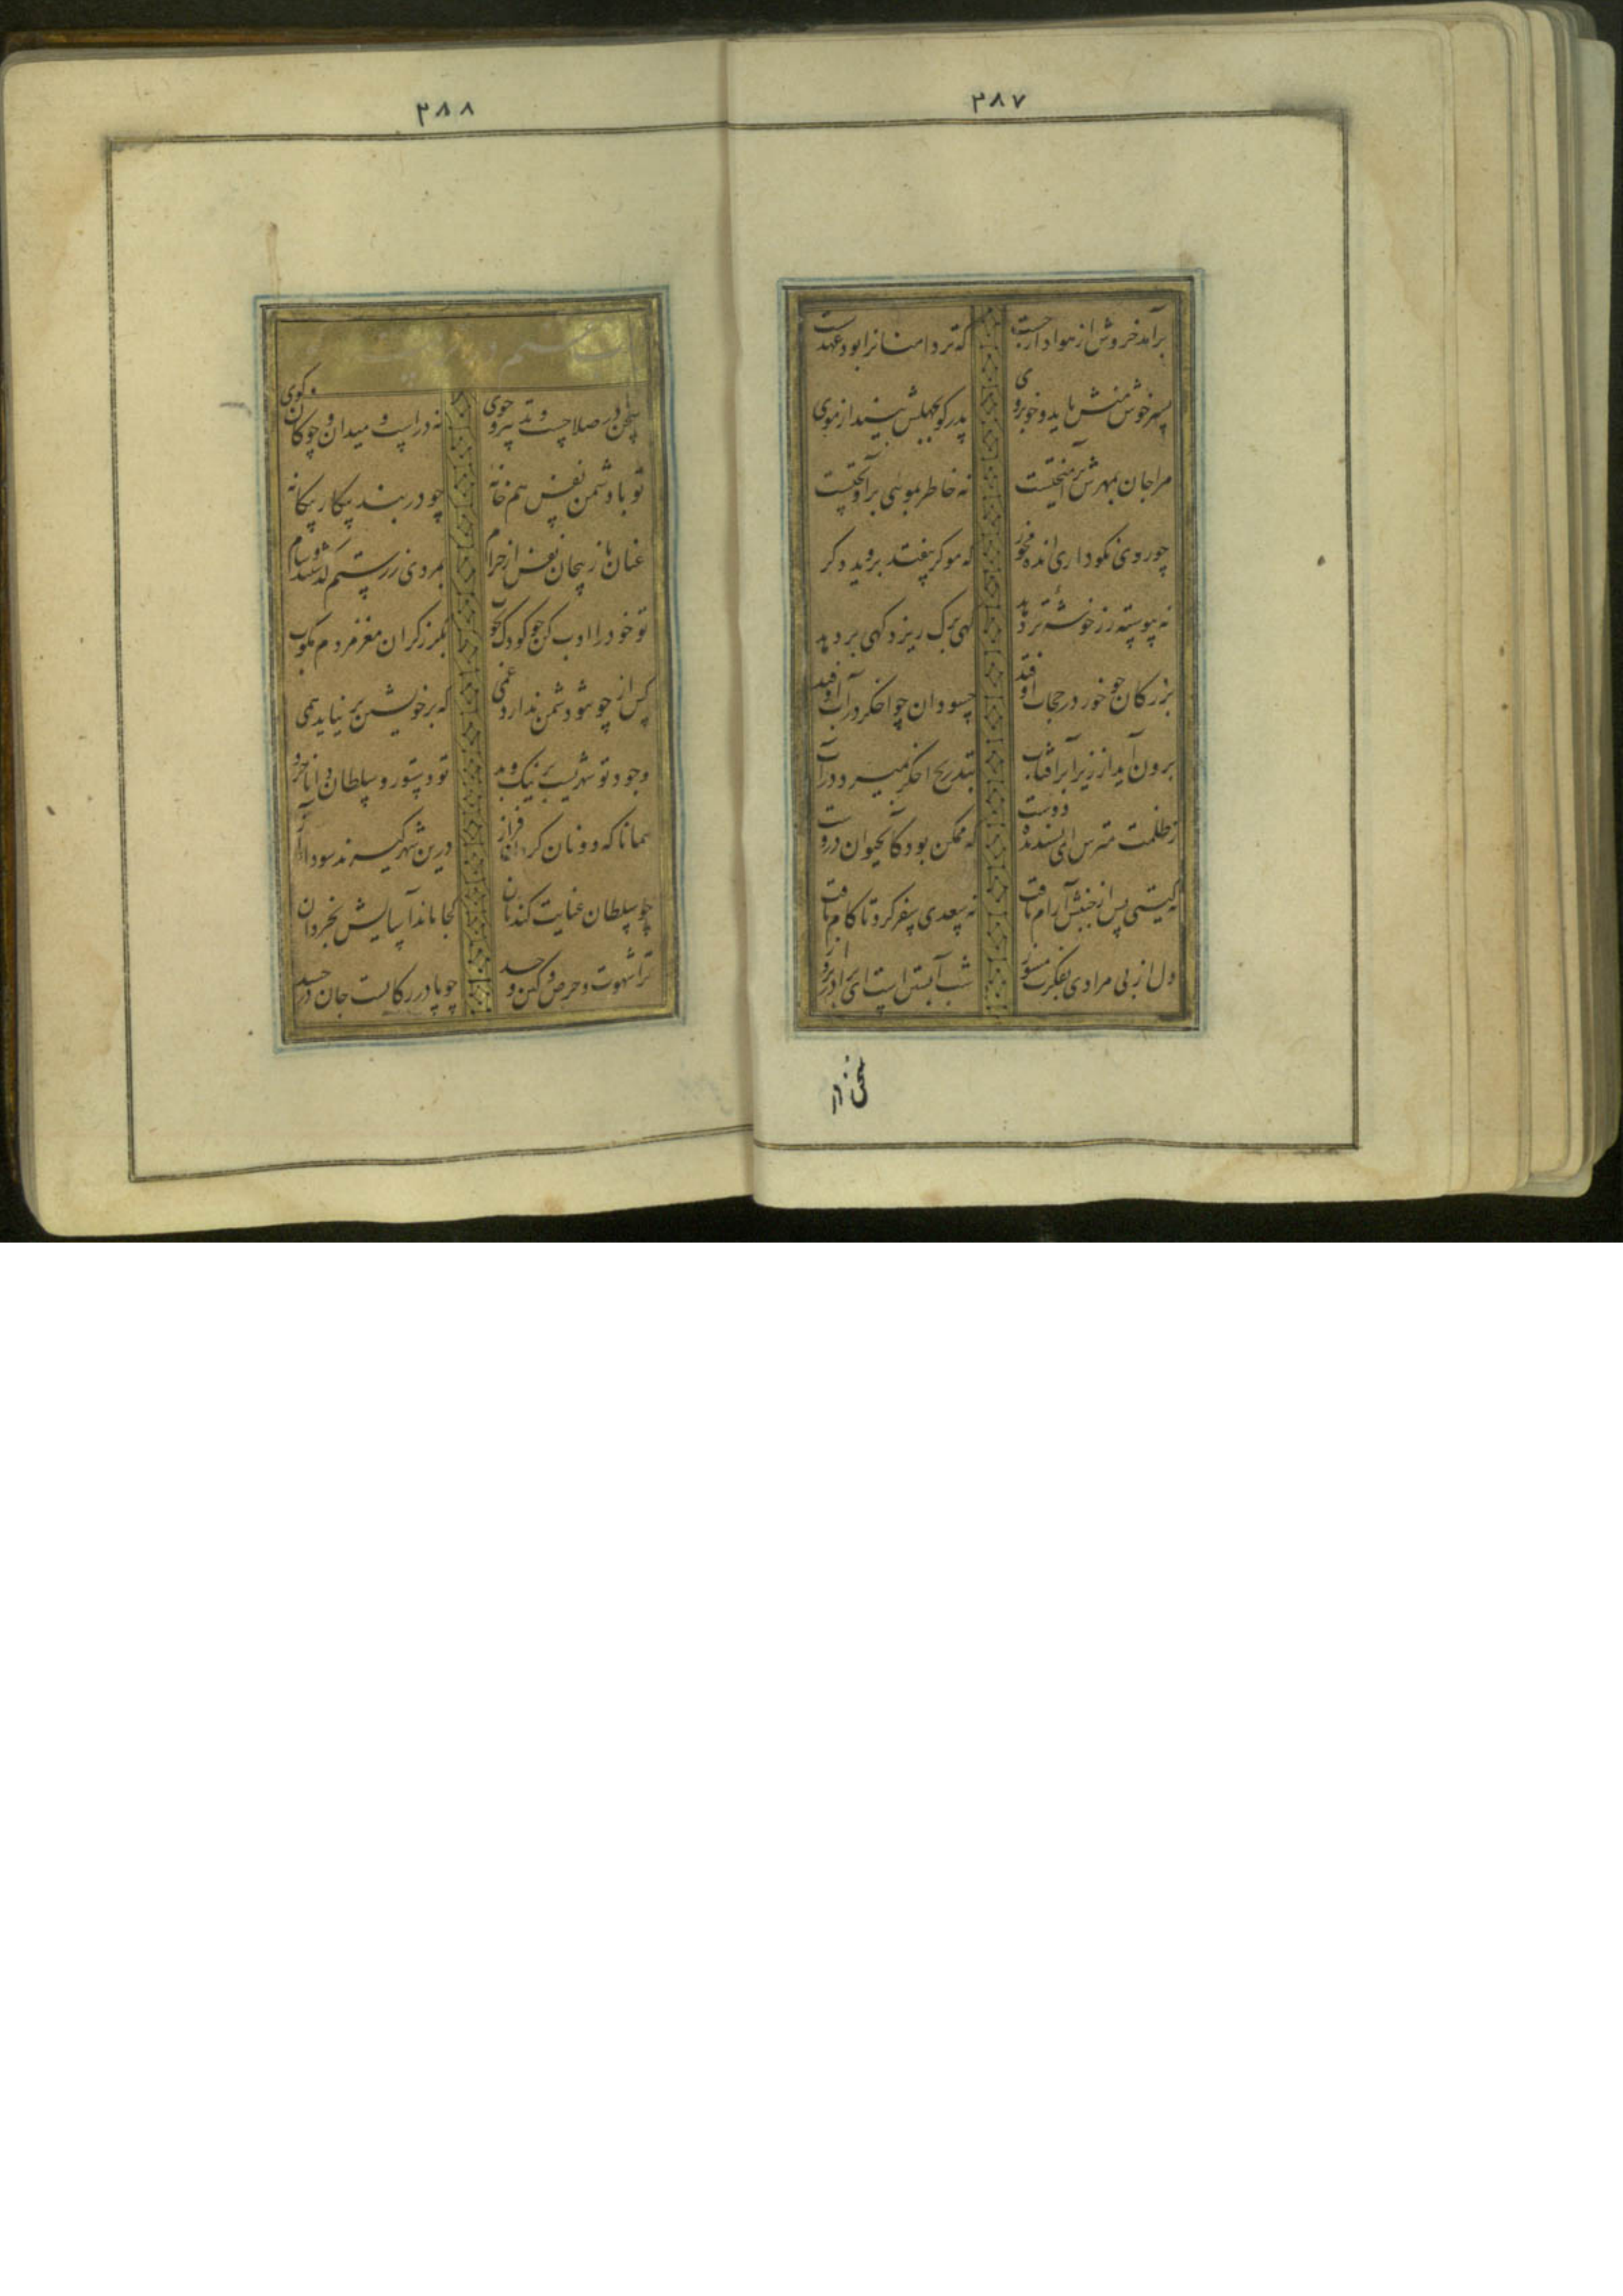 ۳۸۷
برآمد خروش از هوادار چست که تردامنانرا بود عهد سست
پسر خوش منش باید و خوبروی پدر کو بجهلش بینداز موی
مرا جان بمهرش برآمیختست نه خاطر بمویی برآویختست
چو روی نکو داری انده مخور که مو گر بیفتد بروید دگر
نه پیوسته رز خوشه تر دهد گهی برگ ریزد گهی بر دهد
بزرگان چو خور در حجاب اوفتد حسودان چو اخگر در آب اوفتد
برون آید از زیر ابر آفتاب بتدریج اخگر بمیرد در آب
ز ظلمت مترس ای پسندیده دوست که ممکن بود کاب حیوان دروست
نه گیتی پس از جنبش آرام یافت نه سعدی سفر کرد تا کام یافت
دل از بی مرادی بفکرت مسوز شب آبستن است ای برادر بروز
سخن در
۳۸۸
سخن در صلاحست و تدبیر و خوی نه در اسپ و میدان و چوکان و کوی
تو با دشمن نفس هم خانه چو در بند پیکار بیکانه
عنان باز پیچان نفس از حرام بمردی ز رستم گذشتند و سام
تو خود را ادب کن چو کودک بچوب بگرز گران مغز مردم مکوب
کس از چو تو دشمن ندارد غمی که بر خویشتن بر نیاید همی
وجود تو شهریست پر نیک و بد تو دستور و سلطان دانا خرد
همانا که دونان گردن فراز درین شهر گیرند سودا و آز
چو سلطان عنایت کند با بدان کجا ماند آسایش بخردان
ترا شهوت و حرص و کین و حسد چو پا در رکابست جان در جسد